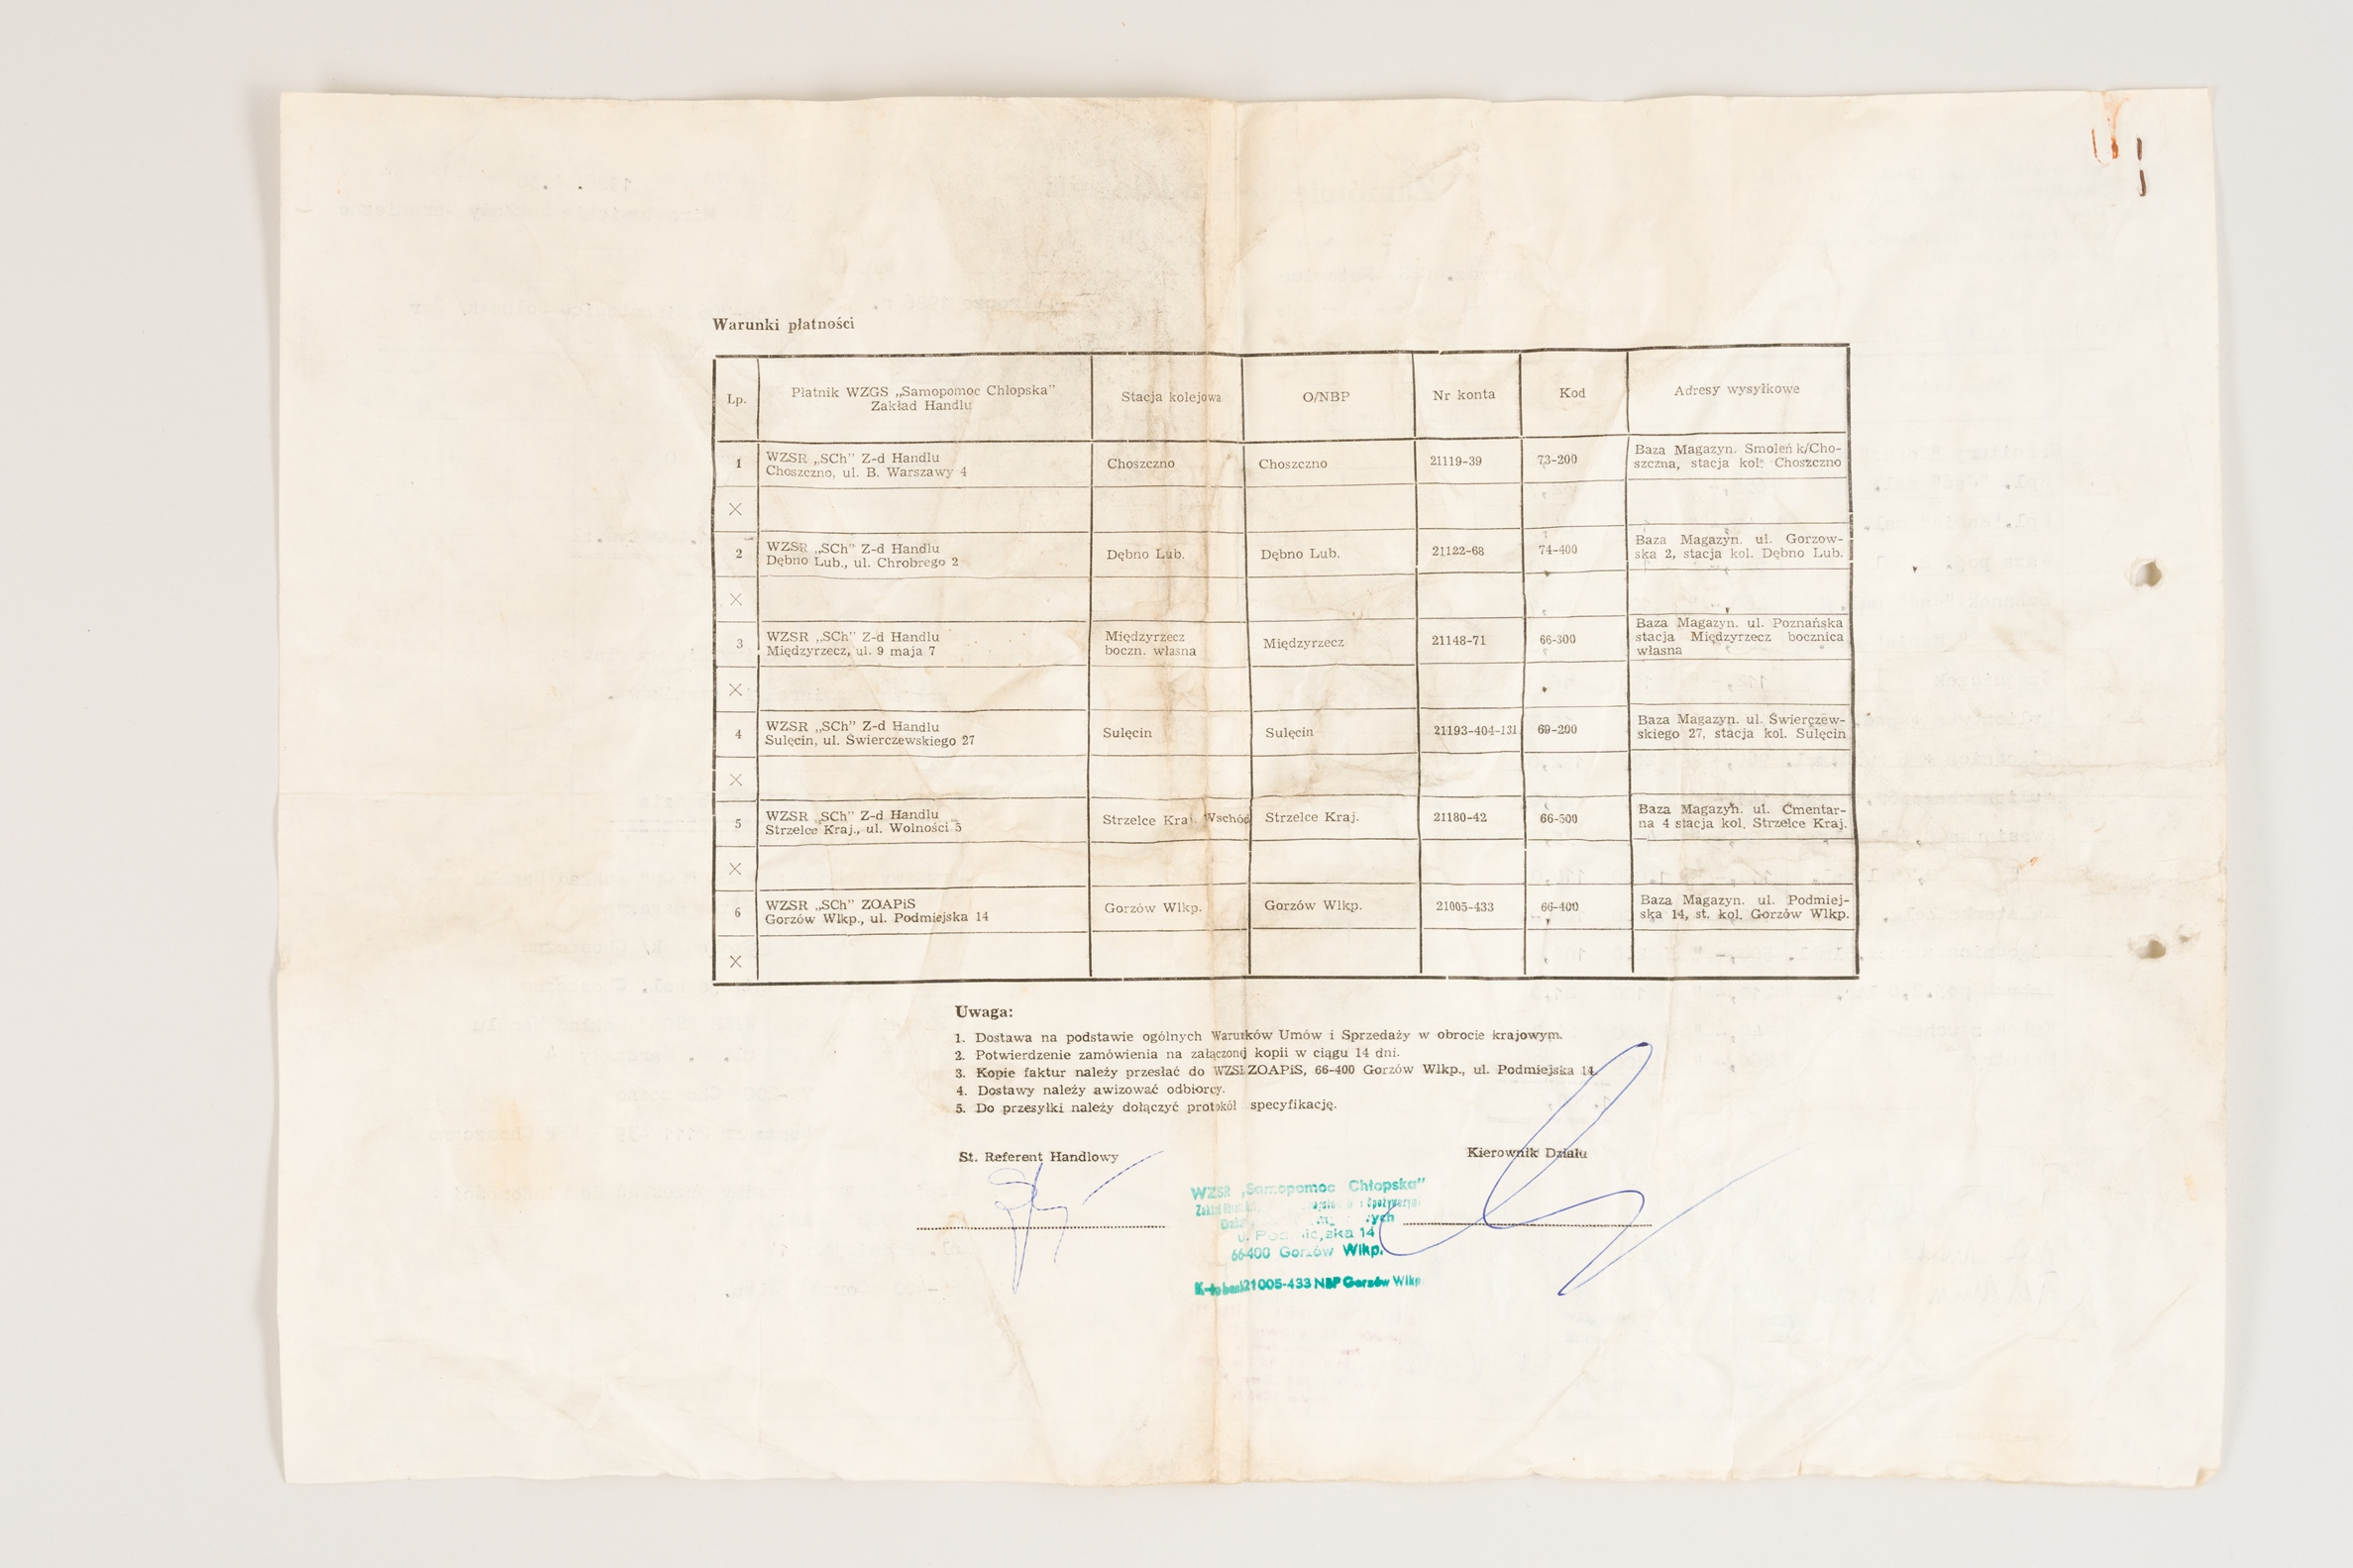 Warunki płatności
Lp.
Płatnik WZGS „Samopomoc Chłopska”
Zakład Handlu
Stacja kolejowa
O/NBP
Nr konta
Kod
Adresy wysyłkowe
1
WZSR „SCh” Z-d Handlu
Choszczno, ul. B. Warszawy 4
Choszczno
Choszczno
21119-39
73-200
Baza Magazyn. Smoleń k/Cho-
szczna, stacja kol. Choszczno
X
2
WZSR „SCh” Z-d Handlu
Dębno Lub., ul. Chrobrego 2
Dębno Lub.
Dębno Lub.
21122-68
74-400
Baza Magazyn. ul. Gorzow-
ska 2, stacja kol. Dębno Lub.
X
3
WZSR „SCh” Z-d Handlu
Międzyrzecz, ul. 9 maja 7
Międzyrzecz
boczn. własna
Międzyrzecz
21148-71
66-300
Baza Magazyn. ul. Poznańska
stacja Międzyrzecz bocznica
własna
X
4
WZSR „SCh” Z-d Handlu
Sulęcin, ul. Świerczewskiego 27
Sulęcin
Sulęcin
21193-404-131
69-200
Baza Magazyn. ul. Świerczew-
skiego 27, stacja kol. Sulęcin
X
5
WZSR „SCh” Z-d Handlu
Strzelce Kraj., ul. Wolności 5
Strzelce Kraj. Wschód
Strzelce Kraj.
21180-42
66-500
Baza Magazyn. ul. Cmentar-
na 4 stacja kol. Strzelce Kraj.
X
6
WZSR „SCh” ZOAPiS
Gorzów Wlkp., ul. Podmiejska 14
Gorzów Wlkp.
Gorzów Wlkp.
21005-433
66-400
Baza Magazyn. ul. Podmiej-
ska 14, st. kol. Gorzów Wlkp.
X
Uwaga:
1. Dostawa na podstawie ogólnych Warunków Umów i Sprzedaży w obrocie krajowym.
2. Potwierdzenie zamówienia na załączonej kopii w ciągu 14 dni.
3. Kopie faktur należy przesłać do WZSR ZOAPiS, 66-400 Gorzów Wlkp., ul. Podmiejska 14.
4. Dostawy należy awizować odbiorcy.
5. Do przesyłki należy dołączyć protokół specyfikację.
St. Referent Handlowy
Kierownik Działu
WZSR „Samopomoc Chłopska”
ul. Podmiejska 14
66-400 Gorzów Wlkp.
K-to bank 21005-433 NBP Gorzów Wlkp.